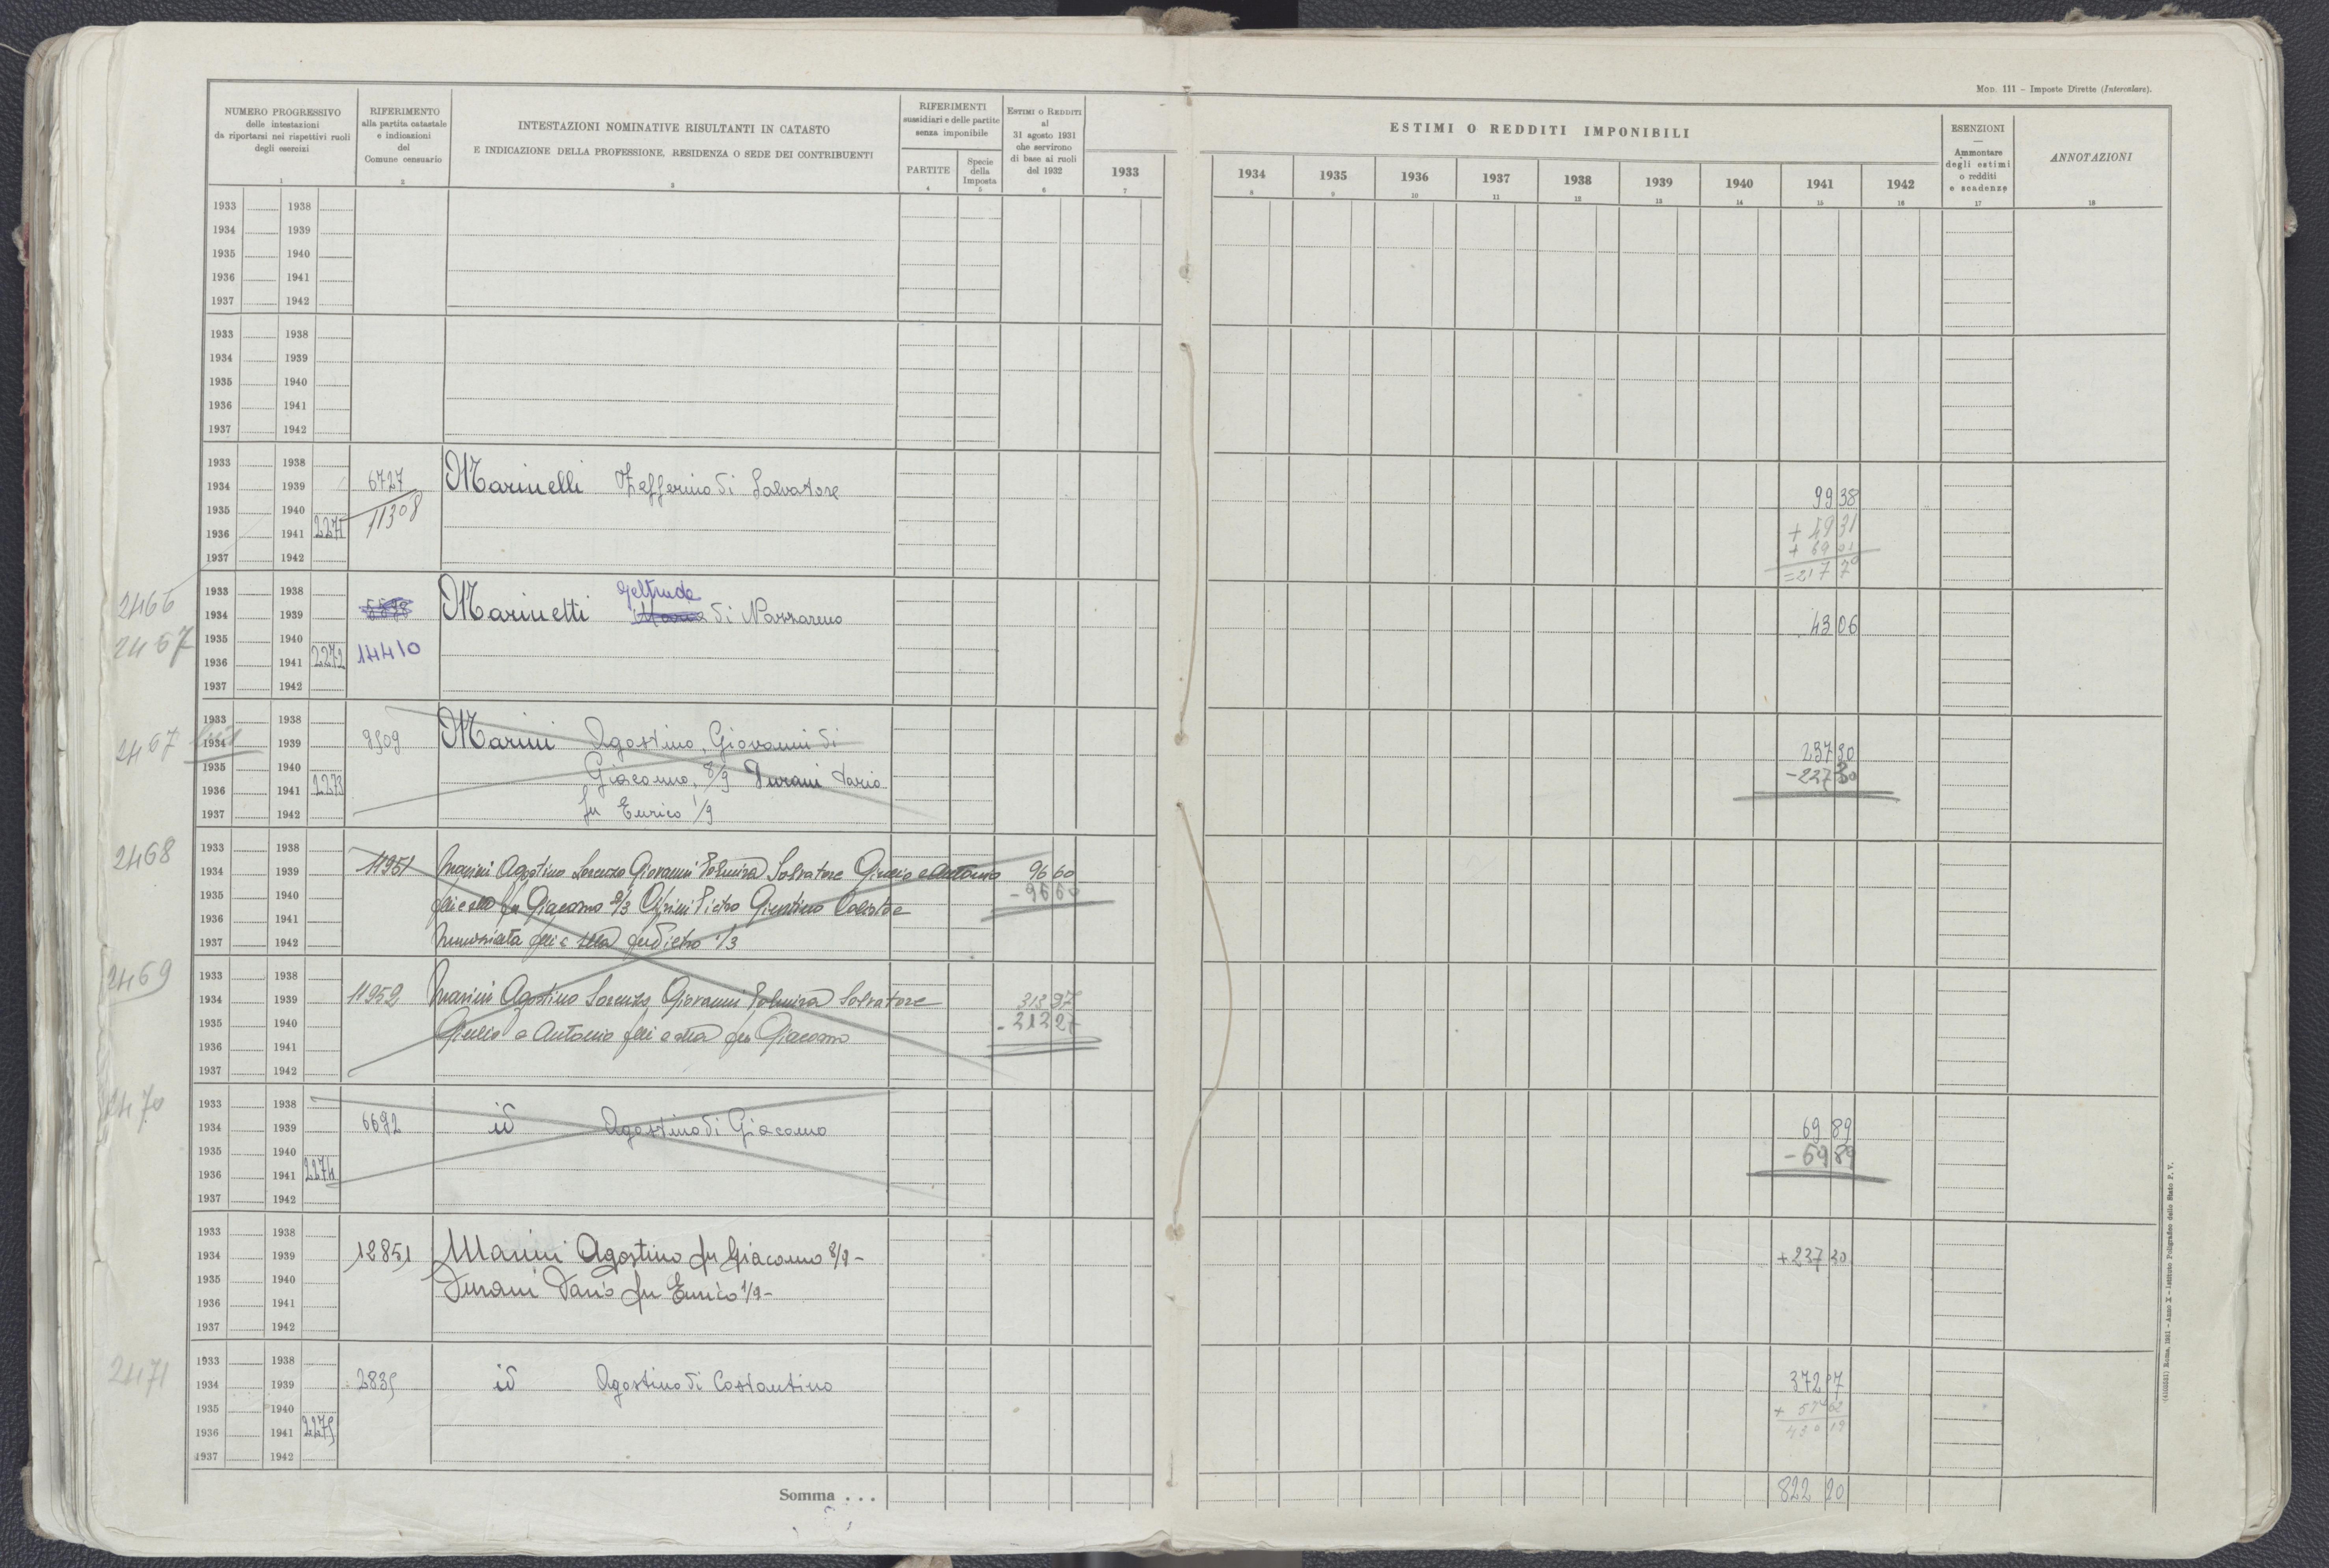 MOD. 111 – Imposte Dirette (Intercalare).
NUMERO PROGRESSIVO
delle intestazioni
da riportarsi nei rispettivi ruoli
degli esercizi
1
RIFERIMENTO
alla partita catastale
e indicazioni
del
Comune censuario
2
INTESTAZIONI NOMINATIVE RISULTANTI IN CATASTO
E INDICAZIONE DELLA PROFESSIONE, RESIDENZA O SEDE DEI CONTRIBUENTI
3
RIFERIMENTI
sussidiari e delle partite
senza imponibile
PARTITE
4
Specie
della
Imposta
5
ESTIMI O REDDITI
al
31 agosto 1931
che servirono
di base ai ruoli
del 1932
6
1933
7
ESTIMI O REDDITI IMPONIBILI
1934 1935 1936 1937 1938 1939 1940 1941 1942
8 9 10 11 12 13 14 15 16
ESENZIONI
—
Ammontare
degli estimi
o redditi
e scadenze
17
ANNOTAZIONI
18
1933 1938
1934 1939
1935 1940
1936 1941
1937 1942
1933 1938
1934 1939
1935 1940
1936 1941
1937 1942
1933 1938
1934 1939 6727 Marinelli Zefferino di Salvatore 99 38
1935 1940 11308
1936 1941 2271 + 49 31
+ 69 01
1937 1942
= 217 70
2466
1933 1938 Geltrude
1934 1939 Marinetti di Nazzareno 43 06
2467
1935 1940
1936 1941 2272 14410
1937 1942
1933 1938
2467 bis
1934 1939 9509 Marini Agostino, Giovanni di 237 30
1935 1940 Giacomo, 8/9 Durani Dario - 227 30
1936 1941 2273
1937 1942 fu Enrico 1/9
2468
1933 1938
1934 1939 11951 Marini Agostino Lorenzo Giovanni Palmira Salvatore Giulio e Antonio 96 60
1935 1940 fu Giacomo 2/3 Pietro - 96 60
1936 1941
1937 1942 fu Pietro 1/3
2469
1933 1938
1934 1939 11952 Marini Agostino Lorenzo, Giovanni Palmira Salvatore 313 97
1935 1940 Giulio e Antonio fu Giacomo
1936 1941
1937 1942
2470
1933 1938
1934 1939 6692 id Agostino di Giacomo 69 89
1935 1940 - 69 89
1936 1941 2274
1937 1942
1933 1938
1934 1939 12851 Marini Agostino fu Giacomo 8/9 - + 237 30
1935 1940 Durani Dario fu Enrico 1/9 -
1936 1941
1937 1942
2471
1933 1938
1934 1939 2835 id Agostino di Costantino 372 57
1935 1940 + 57 62
1936 1941 2275 430 19
1937 1942
Somma . . . 822 20
(4103551) Roma, 1932 - Anno X - Istituto Poligrafico dello Stato P. V.